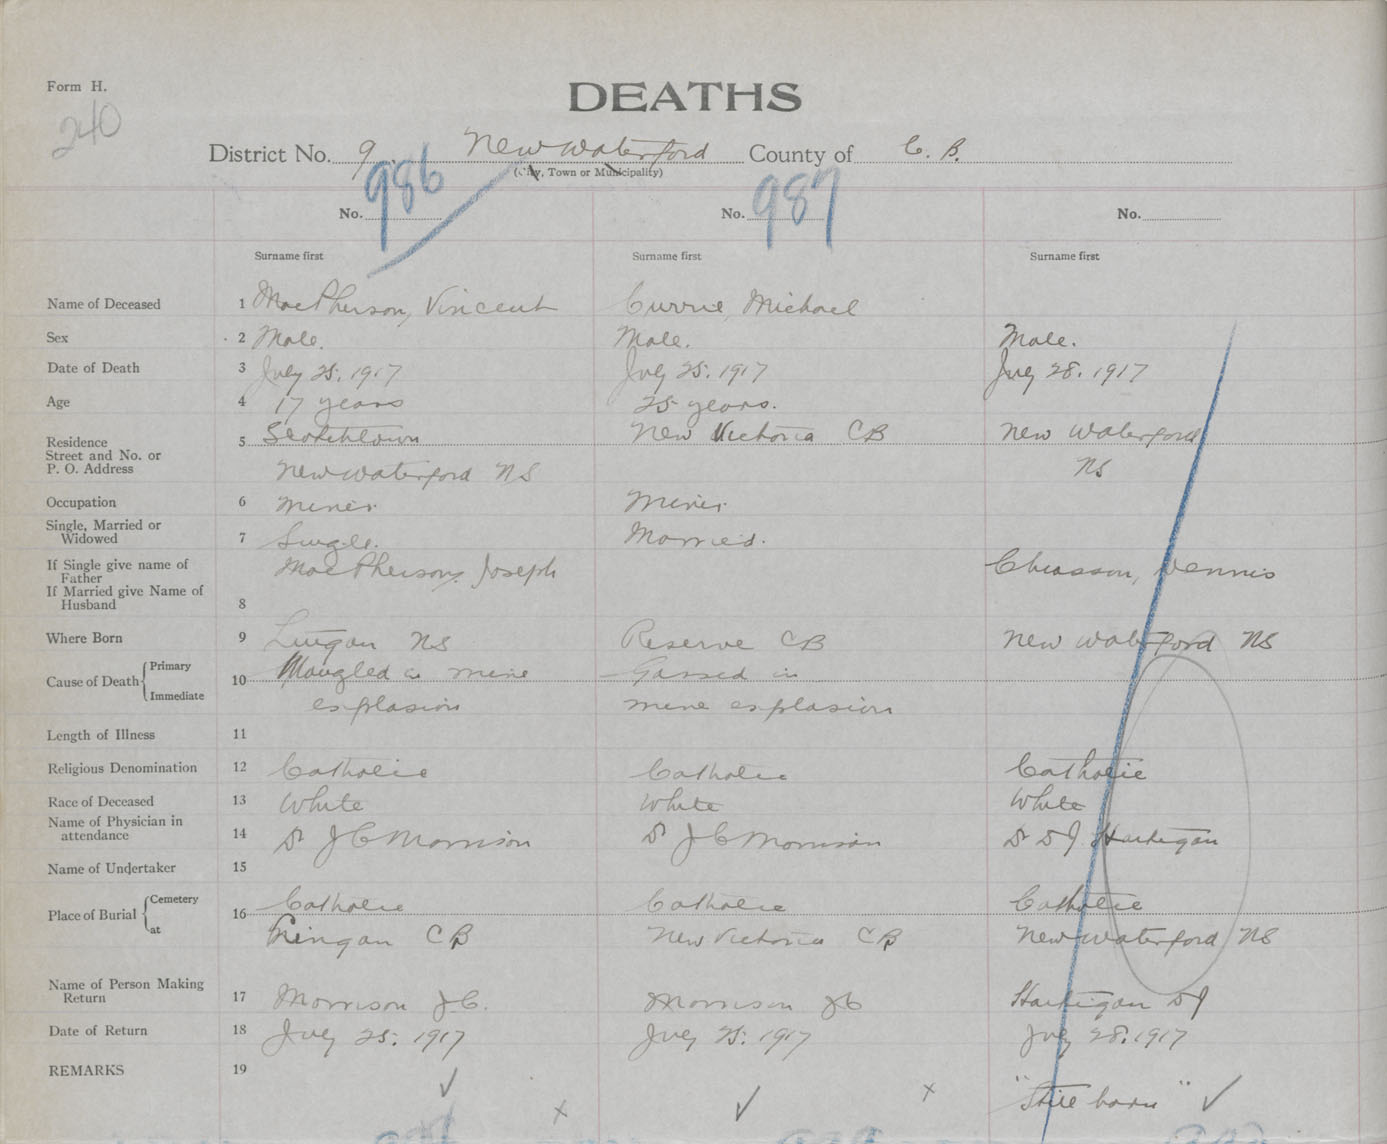 Form H.
240
DEATHS
District No. 9 New Waterford County of C. B.
(City, Town or Municipality)
No. 986 No. 987 No.
Surname first Surname first Surname first
Name of Deceased 1 MacPherson, Vincent Currie, Michael
Sex 2 Male. Male. Male.
Date of Death 3 July 25. 1917 July 25. 1917 July 28. 1917
Age 4 17 years 25 years.
Residence
Street and No. or
P. O. Address
5 Scotchtown New Victoria CB New Waterford
New Waterford NS NS
Occupation 6 Miner Miner
Single, Married or
Widowed
7 Single. Married.
If Single give name of
Father
MacPherson, Joseph Chiasson, Dennis
If Married give Name of
Husband
8
Where Born 9 Lingan NS Reserve CB New Waterford NS
Cause of Death Primary
Immediate
10 Mangled in mine Gassed in
explosion mine explosion
Length of Illness 11
Religious Denomination 12 Catholic Catholic Catholic
Race of Deceased 13 White White White
Name of Physician in
attendance
14 Dr J C Morrison Dr J C Morrison Dr D J Hartigan
Name of Undertaker 15
Place of Burial Cemetery
at
16 Catholic Catholic Catholic
Lingan CB New Victoria CB New Waterford NS
Name of Person Making
Return
17 Morrison J C. Morrison J C Hartigan D J
Date of Return 18 July 25. 1917 July 25. 1917 July 28. 1917
REMARKS 19
"Still born"